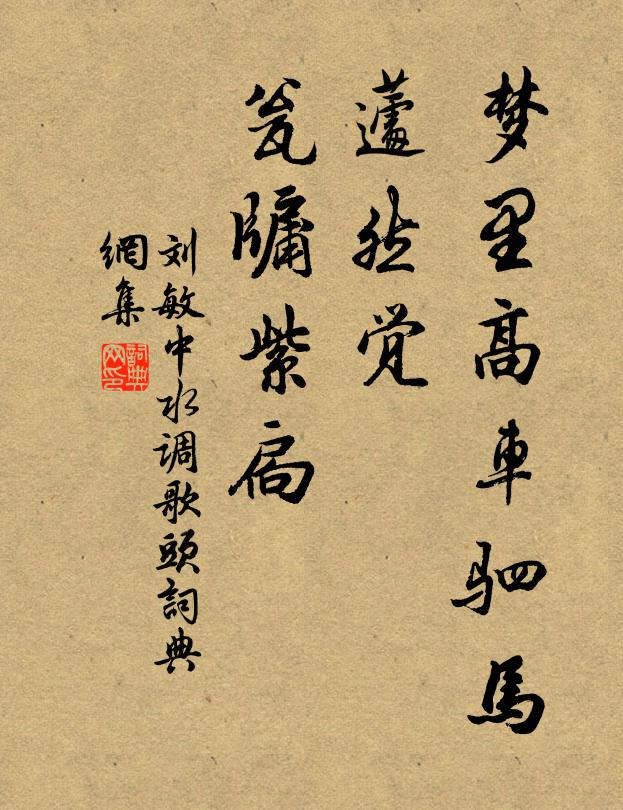 梦里高車驷馬
蘧然觉
瓮牖紫扃
刘敏中水调歌頭詞典
網集
詞典
网印